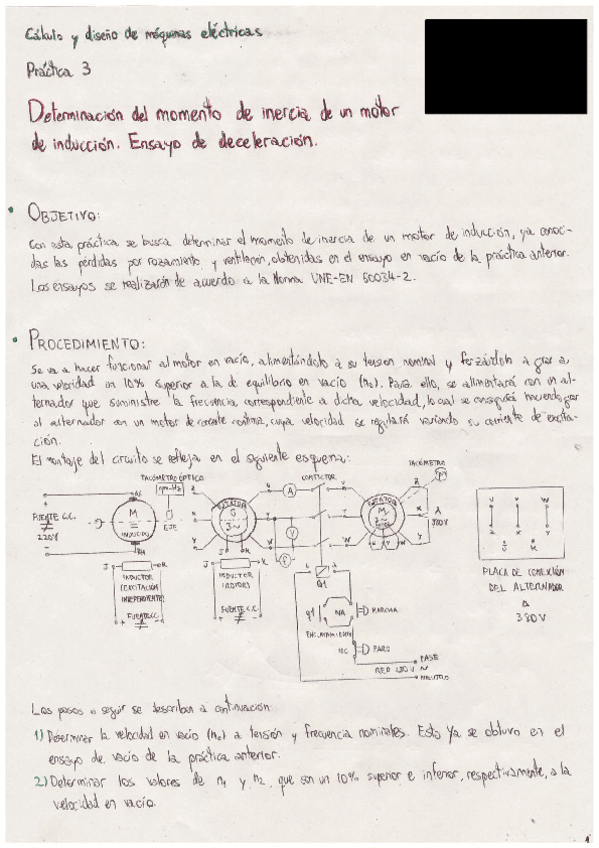 Cálculo y diseño de máquinas eléctricas
Práctica 3
Determinación del momento de inercia de un motor
de inducción. Ensayo de deceleración.
• OBJETIVO:
Con esta práctica se busca determinar el momento de inercia de un motor de inducción, ya conoci-
das las pérdidas por rozamiento y ventilación, obtenidas en el ensayo en vacío de la práctica anterior.
Los ensayos se realizarán de acuerdo a la Norma UNE-EN 60034-2.
• PROCEDIMIENTO:
Se va a hacer funcionar al motor en vacío, alimentándolo a su tensión nominal y forzándolo a girar a
una velocidad un 10% superior a la de equilibrio en vacío (n₀). Para ello, se alimentará con un al-
ternador que suministre la frecuencia correspondiente a dicha velocidad, lo cual se conseguirá haciendo girar
al alternador con un motor de corriente continua, cuya velocidad se regulará variando su corriente de excita-
ción.
El montaje del circuito se refleja en el siguiente esquema:
TACÓMETRO ÓPTICO
rpm-Hz
CONTACTOR
TACÓMETRO
FUENTE C.C.
220V
M
INDUCIDO
EJE
ESTATOR
G
3~
A
V
f
ESTATOR
M
3~
380V
U V W
Z X Y
PLACA DE CONEXIÓN
DEL ALTERNADOR
Δ
380V
J K
INDUCTOR
(EXCITACIÓN
INDEPENDIENTE)
FUENTE C.C.
J K
INDUCTOR
(ROTOR)
FUENTE C.C.
Q1
q1
NA
MARCHA
ENCLAVAMIENTO
NC
PARO
FASE
RED 230V ~
NEUTRO
Los pasos a seguir se describen a continuación:
1) Determinar la velocidad en vacío (n₀) a tensión y frecuencia nominales. Esta ya se obtuvo en el
ensayo de vacío de la práctica anterior.
2) Determinar los valores de n₁ y n₂, que son un 10% superior e inferior, respectivamente, a la
velocidad en vacío.
1